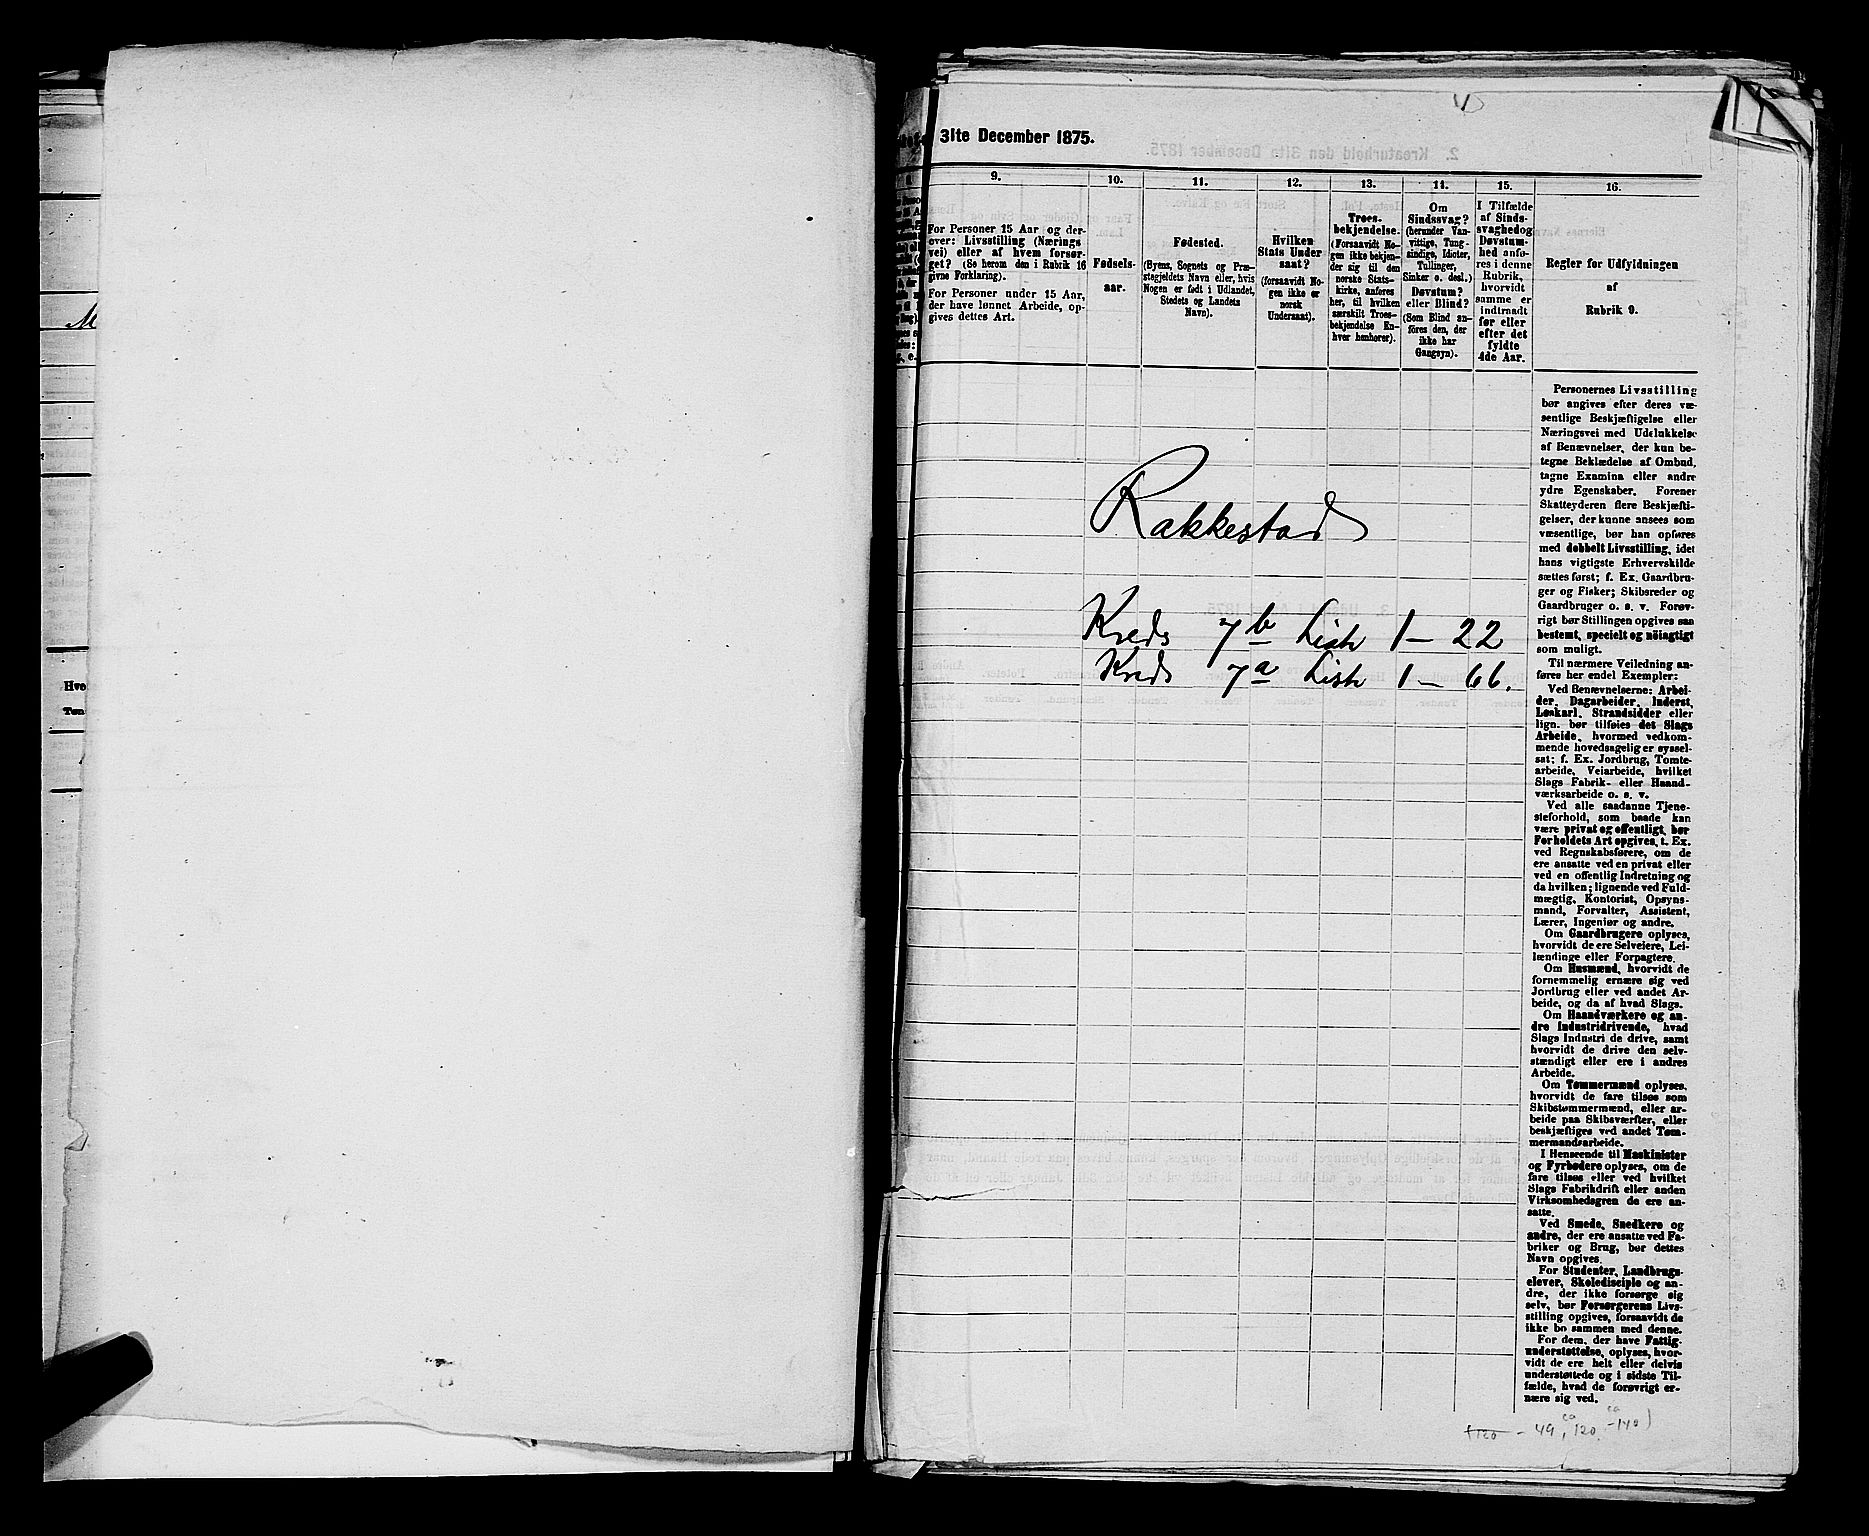 M
Hve
Tøn
31te December 1875.
9.
10.
11.
12.
13.
14.
15.
16.
For Personer 15 Aar og der-
over: Livsstilling (Nærings
vei) eller af hvem forsør-
get? (Se herom den i Rubrik 16
givne Forklaring).
For Personer under 15 Aar,
der have lønnet Arbeide, op-
gives dettes Art.
Fødsels-
aar.
Fødested.
(Byens, Sognets og Præ-
stegjeldets Navn eller, hvis
Nogen er født i Udlandet,
Stedets og Landets
Navn).
Hvilken
Stats Under
saat?
(forsaavidt No-
gen ikke er
norsk
Undersaat).
Troes-
bekjendelse.
(Forsaavidt No-
gen ikke bekjen-
der sig til den
norske Stats-
kirke, anføres
her, til hvilken
særskilt Troes-
bekjendelse En-
hver henhører).
Om
Sindssvag?
(herunder Van-
vittige, Tung-
sindige, Idioter,
Tullinger,
Sinker o. desl.)
Døvstum?
eller Blind?
(Som Blind an-
føres den, der
ikke har
Gangsyn).
I Tilfælde
af Sinds-
svaghed og
Døvstum-
hed anfø-
res i denne
Rubrik,
hvorvidt
samme er
indtraadt
før eller
efter det
fyldte
4de Aar.
Regler før Udfyldningen
af
Rubrik 9.
Rakkestad
Kreds 7b Liste 1 – 22
Kreds 7a Liste 1 – 66.
Personernes Livsstilling
bør angives efter deres væ-
sentlige Beskjæftigelse eller
Næringsvei med Udelukkelse
af Benævnelser, der kun be-
tegne Beklædelse af Ombud,
tagne Examina eller andre
ydre Egenskaber. Forener
Skatteyderen flere Beskjæfti-
gelser, der kunne ansees som
væsentlige, bør han opføres
med dobbelt Livsstilling, idet
hans vigtigste Erhvervskilde
sættes først; f. Ex. Gaardbru-
ger og Fisker; Skibsreder og
Gaardbruger o. s. v. Forøv-
rigt bør Stillingen opgives saa
bestemt, specielt og nöiagtigt
som muligt.
Til nærmere Veiledning an-
føres her endel Exempler:
Ved Benævnelserne: Arbei-
der, Dagarbeider, Inderst,
Løskarl, Strandsidder eller
lign. bør tilføies det Slags
Arbeide, hvormed vedkom-
mende hovedsagelig er syssel-
sat; f. Ex. Jordbrug, Tomte-
arbeide, Veiarbeide, hvilket
Slags Fabrik- eller Haand-
værksarbeide o. s. v.
Ved alle saadanne Tjene-
steforhold, som baade kan
være privat og offentligt, bør
Forholdets Art opgives, t. Ex.
ved Regnskabsførere, om de
ere ansatte ved en privat eller
ved en offentlig Indretning og
da hvilken; lignende ved Fuld-
mægtig, Kontorist, Opsyns-
mand, Forvalter, Assistent,
Lærer, Ingeniør og andre.
Om Gaardbrugere oplyses,
hvorvidt de ere Selveiere, Lei-
lændinge eller Forpagtere.
Om Husmænd, hvorvidt de
fornemmelig ernære sig ved
Jordbrug eller ved andet Ar-
beide, og da af hvad Slags.
Om Haandværkere og an-
dre Industridrivende, hvad
Slags Industri de drive, samt
hvorvidt de drive den selv-
stændigt eller ere i andres
Arbeide.
Om Tømmermænd oplyses,
hvorvidt de fare tilsøs som
Skibstømmermænd, eller ar-
beide paa Skibsværfter, eller
beskjæftiges ved andet Tøm-
mermandsarbeide.
I Henseende til Maskinister
og Fyrbødere oplyses, om de
fare tilsøs eller ved hvilket
Slags Fabrikdrift eller anden
Virksomhedsgren de ere an-
satte.
Ved Smede, Snedkere og
andre, der ere ansatte ved Fa-
briker og Brug, bør dettes
Navn opgives.
For Studenter, Landbrugs-
elever, Skoledisciple og an-
dre, der ikke forsørge sig
selv, bør Forsørgerens Livs-
stilling opgives, forsaavidt de
ikke bo sammen med denne.
For dem, der have Fattig-
understøttelse, oplyses, hvor-
vidt de ere helt eller delvis
understøttede og i sidste Til-
fælde, hvad de forøvrigt er-
nære sig ved.
- 49, ca 120, ca -140)